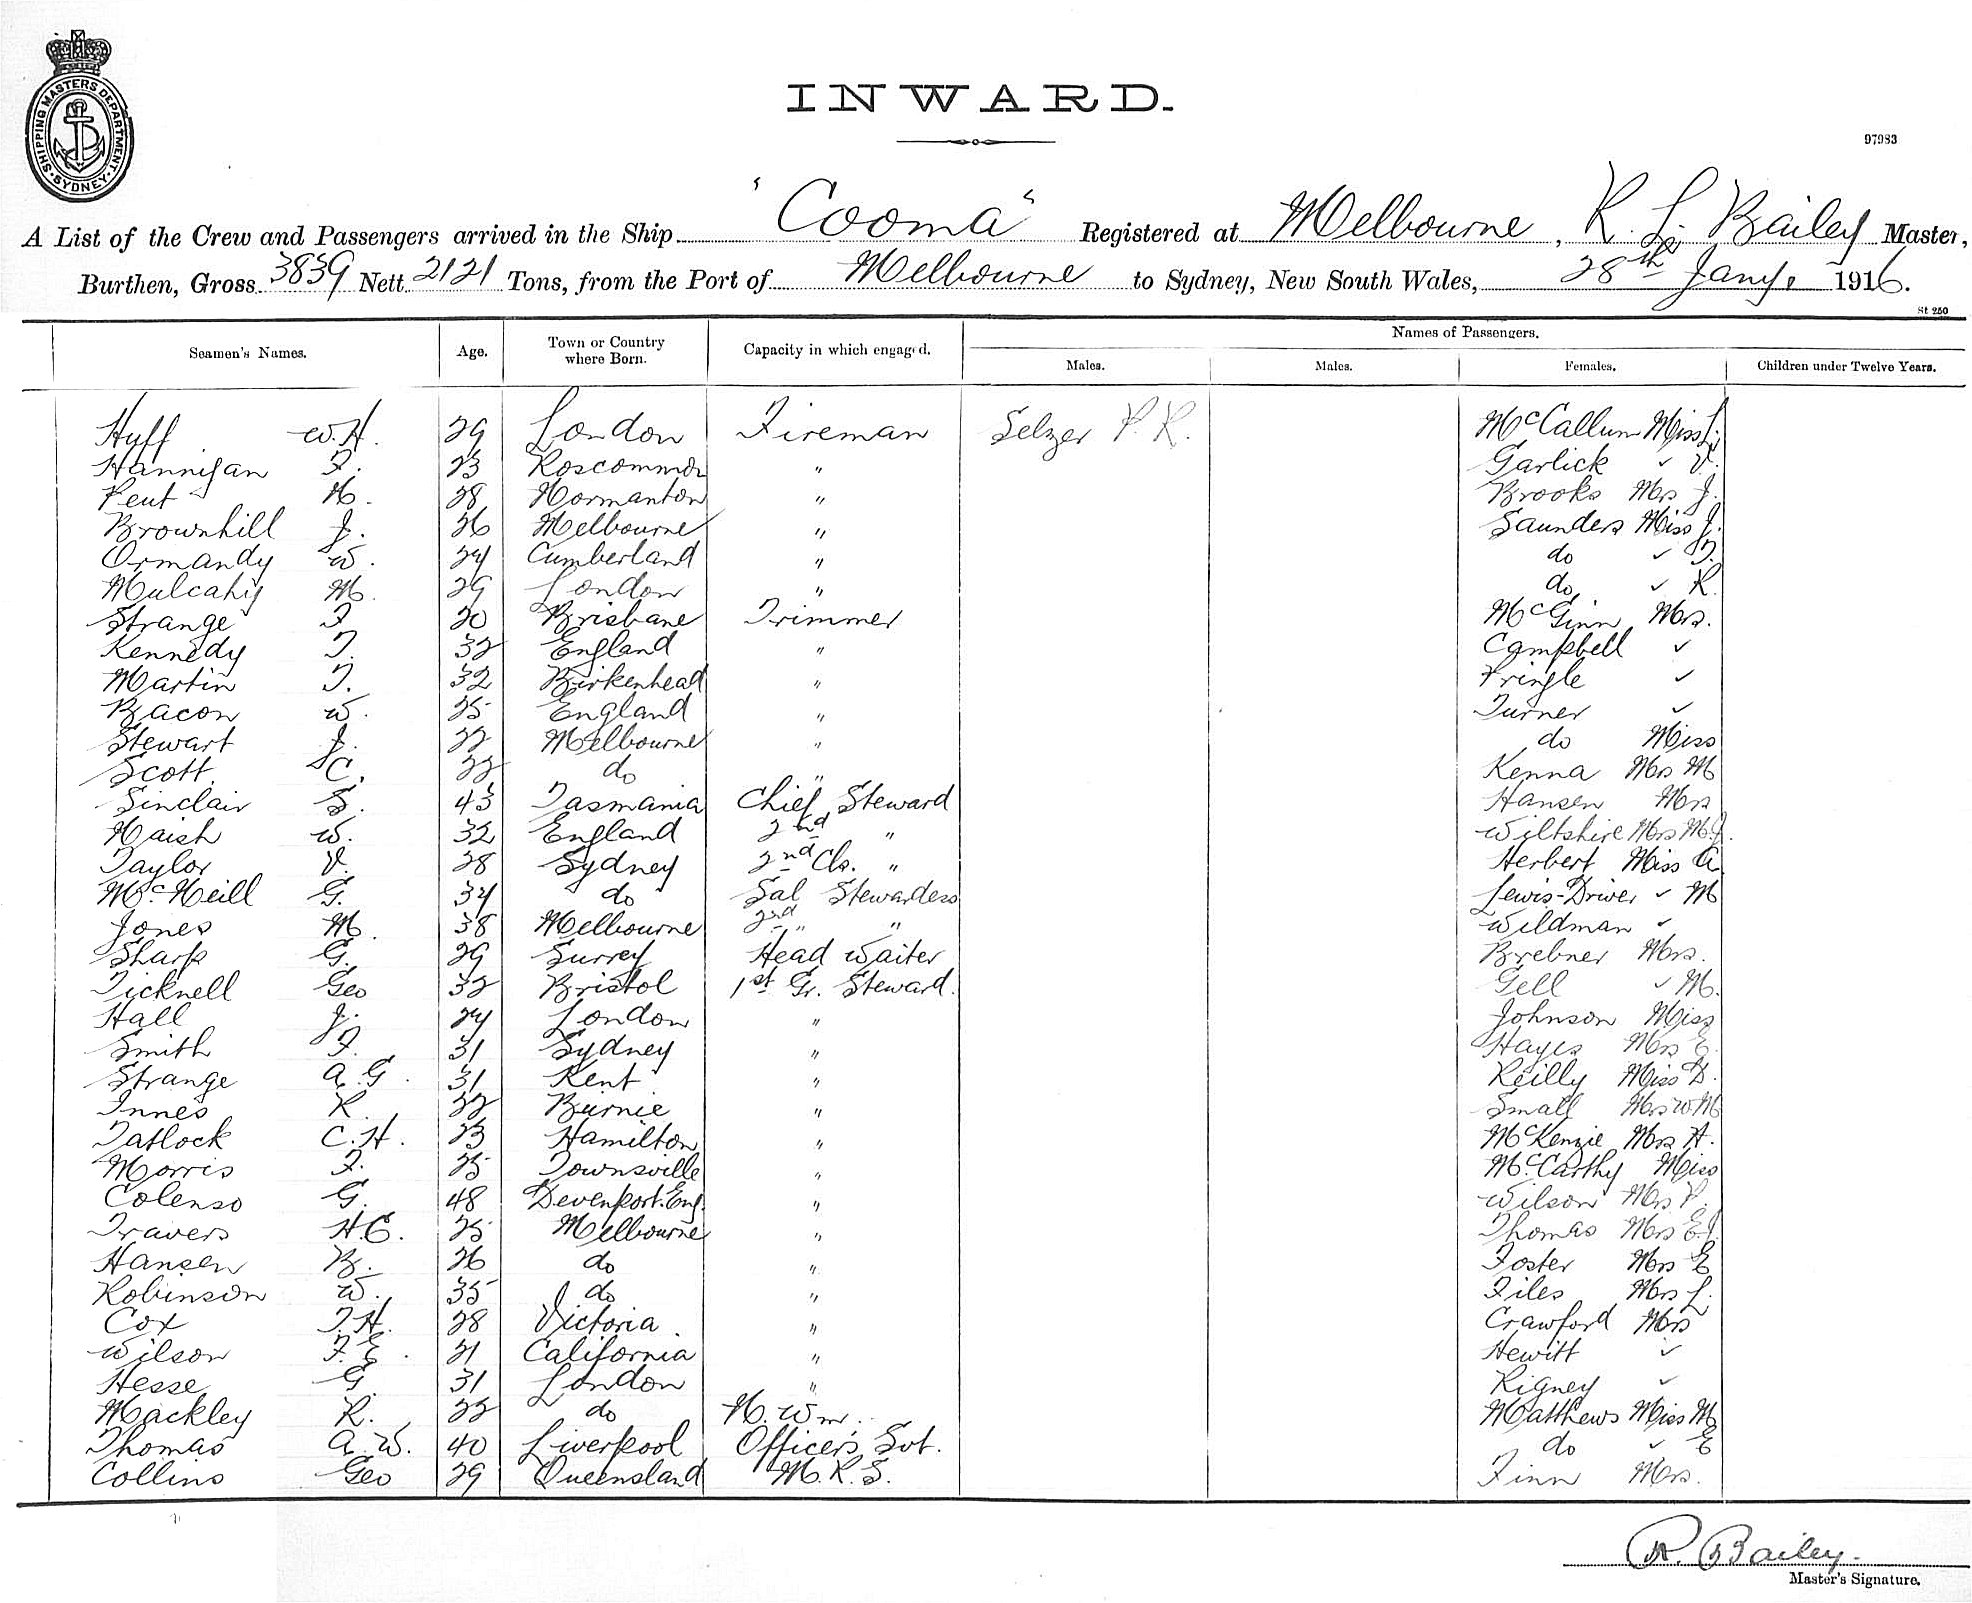 SHIPPING MASTERS DEPARTMENT. SYDNEY.
INWARD.
97983
A List of the Crew and Passengers arrived in the Ship "Cooma" Registered at Melbourne, R. L. Bailey Master,
Burthen, Gross 3839 Nett 2121 Tons, from the Port of Melbourne to Sydney, New South Wales, 28th Jany. 1916.
St 250
Seamen's Names. Age. Town or Country where Born. Capacity in which engaged. Names of Passengers.
Males. Males. Females. Children under Twelve Years.
Huff W. H. 29 London Fireman Selzer P. R. McCallum Miss L.
Hannigan F. 23 Roscommon " Garlick " V.
Pent N. 28 Normanton " Brooks Mrs J.
Brownhill J. 26 Melbourne " Saunders Miss J.
Ormandy W. 24 Cumberland " do " T.
Mulcahy M. 29 London " do " R
Strange F 20 Brisbane Trimmer McGinn Mrs.
Kennedy T. 32 England " Campbell "
Martin T. 32 Birkenhead " Pringle "
Bacon W. 25 England " Turner "
Stewart J. 22 Melbourne " do Miss
Scott C. 22 do " Kenna Mrs M
Sinclair S. 43 Tasmania Chief Steward Hansen Mrs
Haish W. 32 England 2nd " Wiltshire Mrs M. J.
Taylor V. 28 Sydney 2nd Cls. " Herbert Miss A
McNeill G. 34 do Sal Stewardess Lewis-Driver " M
Jones M. 38 Melbourne 2nd " " Wildman "
Sharp G. 29 Surrey Head Waiter Brebner Mrs.
Ticknell Geo 32 Bristol 1st Gr. Steward. Gell " M.
Hall J. 24 London " Johnson Miss
Smith F. 31 Sydney " Hayes Mrs E.
Strange A. G. 31 Kent " Reilly Miss D.
Innes R. 22 Burnie " Small Mrs W M
Tatlock C. H. 23 Hamilton " McKenzie Mrs A.
Morris F. 25 Townsville " McCarthy Miss
Colenso G. 48 Devenport. Eng. " Wilson Mrs P.
Travers H. C. 25 Melbourne " Thomas Mrs E. J.
Hansen B. 26 do " Foster Mrs E
Robinson W. 35 do " Files Mrs L.
Cox T. H. 28 Victoria " Crawford Mrs
Wilson F. E. 21 California " Hewitt "
Hesse G. 31 London " Rigney "
Mackley R. 22 do N. Wm. Matthews Miss M
Thomas A. W. 40 Liverpool Officers Svt. do " E
Collins Geo 29 Queensland M. R. S. Finn Mrs.
R. Bailey.
Master's Signature.